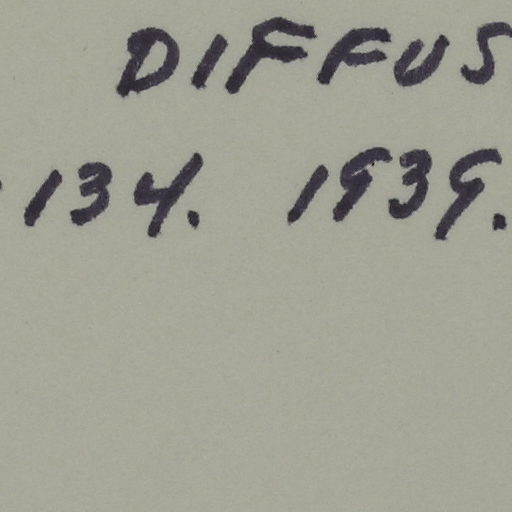 DIFFUS
134. 1939.